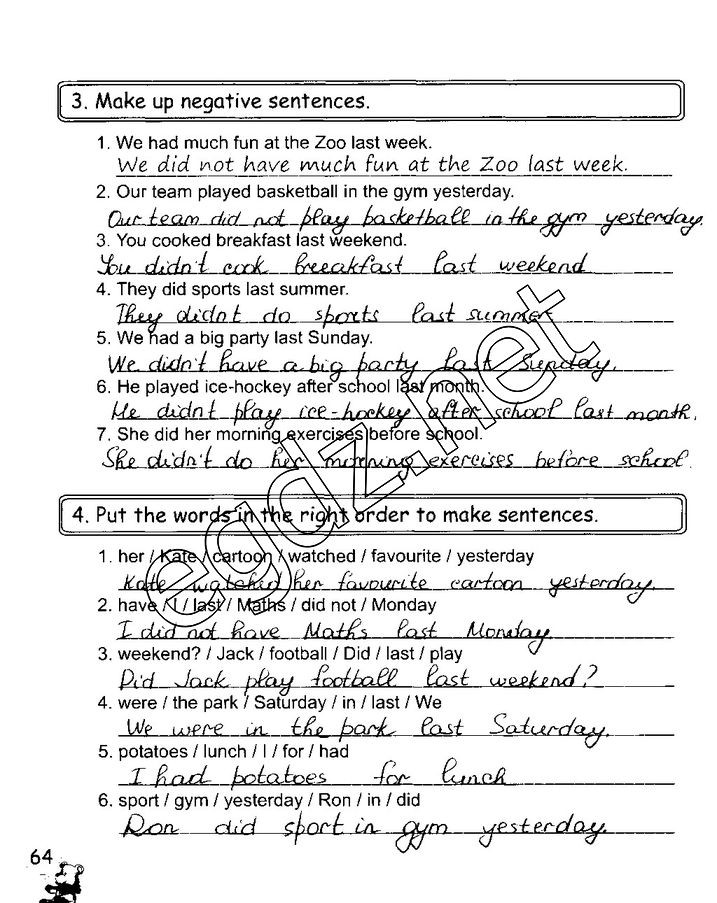 3. Make up negative sentences.
1. We had much fun at the Zoo last week.
We did not have much fun at the Zoo last week.
2. Our team played basketball in the gym yesterday.
Our team did not play basketball in the gym yesterday.
3. You cooked breakfast last weekend.
You didn't cook breeakfast last weekend
4. They did sports last summer.
They didnt do sports last summer
5. We had a big party last Sunday.
We didn't have a big party last Sunday.
6. He played ice-hockey after school last month.
He didnt play ice-hockey after school last month.
7. She did her morning exercises before school.
She didn't do her morning exercises before school.
egdz.net
4. Put the words in the right order to make sentences.
1. her / Kate / cartoon / watched / favourite / yesterday
Kate watched her favourite cartoon yesterday.
2. have / I / last / Maths / did not / Monday
I did not have Maths last Monday
3. weekend? / Jack / football / Did / last / play
Did Jack play football last weekend?
4. were / the park / Saturday / in / last / We
We were in the park last Saturday.
5. potatoes / lunch / I / for / had
I had potatoes for lunch
6. sport / gym / yesterday / Ron / in / did
Ron did sport in gym yesterday.
64